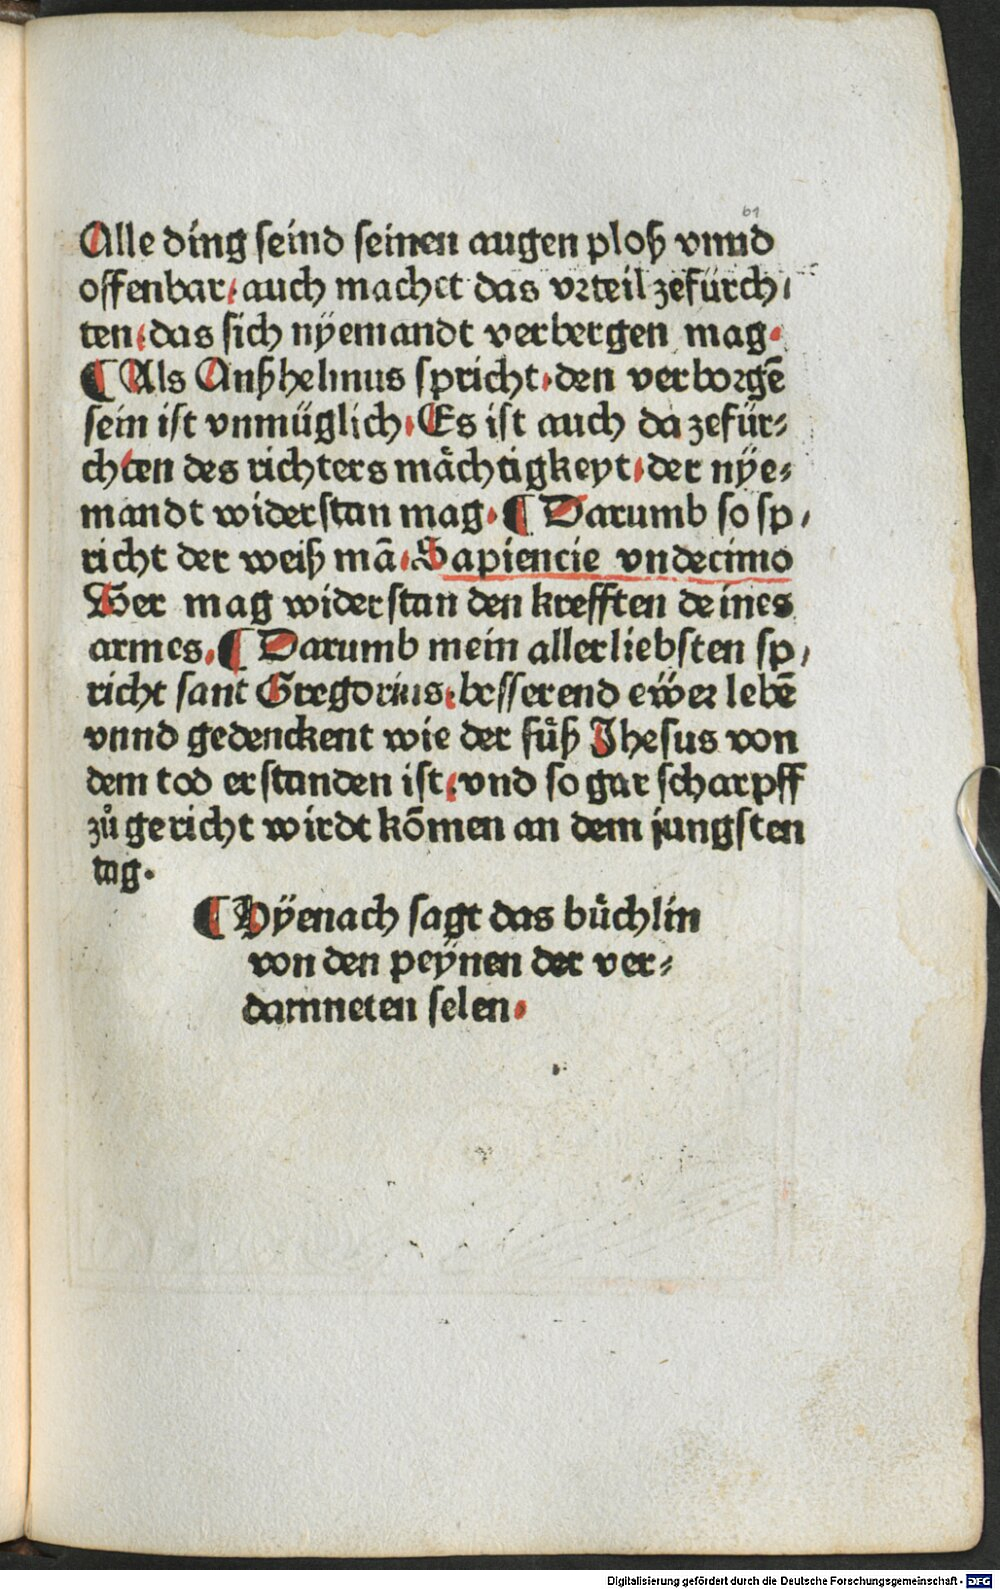 61
Alle ding seind seinen augen ploß vnnd
offenbar, auch machet das vrteil zefürch,
ten, das sich nÿemandt verbergen mag.
¶ Als Anßhelmus spricht, den verborgē
sein ist vnmüglich, Es ist auch da zefür⸗
chten des richters mächtigkeyt, der nÿe⸗
mandt widerstan mag. ¶ Darumb so sp,
richt der weiß mā, Sapiencie vndecimo
Wer mag widerstan den krefften deines
armes. ¶ Darumb mein allerliebsten sp,
richt sant Gregorius, besserend eẅer lebē
vnnd gedenckent wie der süͤß Jhesus von
dem tod erstanden ist, vnd so gar scharpff
zů gericht wirdt kōmen an dem jungsten
tag.
¶ Hÿenach sagt das büͤchlin
von den peÿnen der ver⸗
damneten selen.
Digitalisierung gefördert durch die Deutsche Forschungsgemeinschaft - DFG